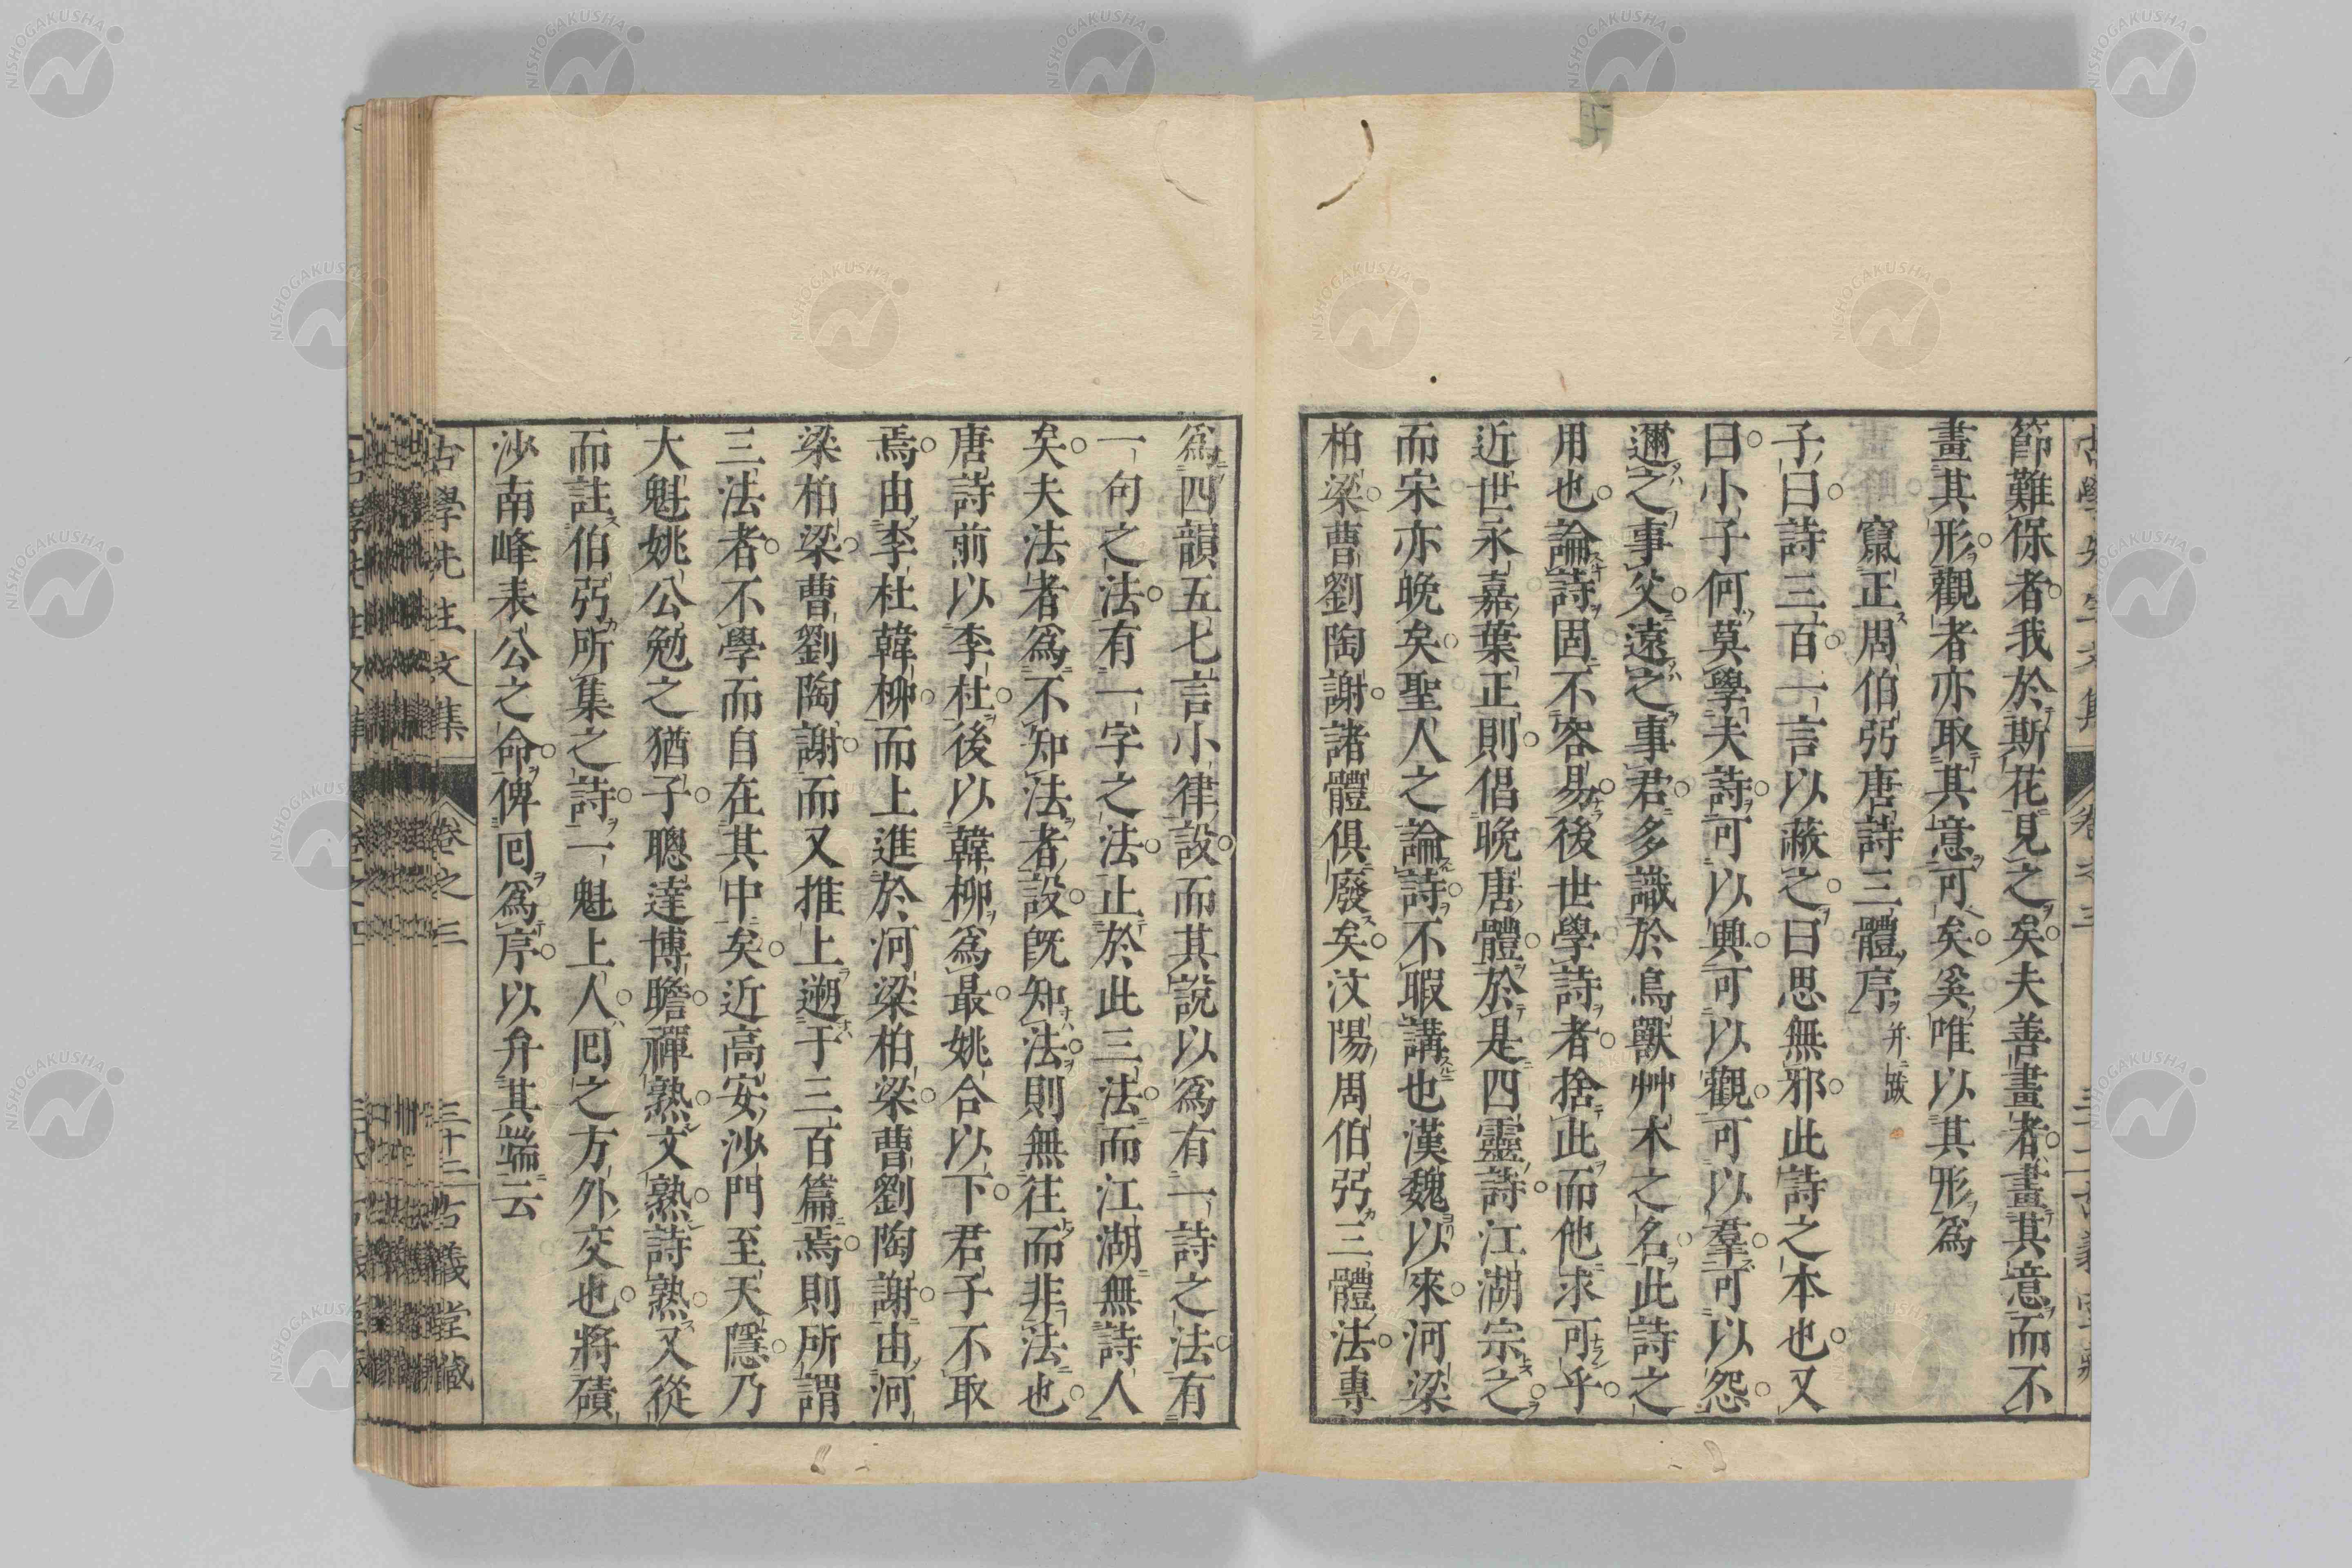 節難保者我於斯花見之矣夫善畫者畫其意而不
畫其形觀者亦取其意可矣奚唯以其形爲
竄正周伯弜唐詩三體序 并跋
子曰詩三百一言以蔽之曰思無邪此詩之本也又
曰小子何莫學夫詩可以興可以觀可以羣可以怨
邇之事父遠之事君多識於鳥獸艸木之名此詩之
用也論詩固不容易後世學詩者捨此而他求可乎
近世永嘉葉正則倡晚唐體於是四靈詩江湖宗之
而宋亦晚矣聖人之論詩不暇講也漢魏以來河梁
柏梁曹劉陶謝諸體俱廢矣汶陽周伯弜三體法專
爲四韻五七言小律設而其說以爲有一詩之法有
一句之法有一字之法止於此三法而江湖無詩人
矣夫法者爲不知法者設旣知法則無往而非法也
唐詩前以李杜後以韓柳爲最姚合以下君子不取
焉由李杜韓柳而上進於河梁柏梁曹劉陶謝由河
梁柏梁曹劉陶謝而又推上遡于三百篇焉則所謂
三法者不學而自在其中矣近高安沙門至天隱乃
大魁姚公勉之猶子聰達博瞻禪熟文熟詩熟又從
而註伯弜所集之詩一魁上人回之方外交也將磧
沙南峰袁公之命俾回爲序以弁其端云
古學先生文集 卷之三 三十二 古義堂藏